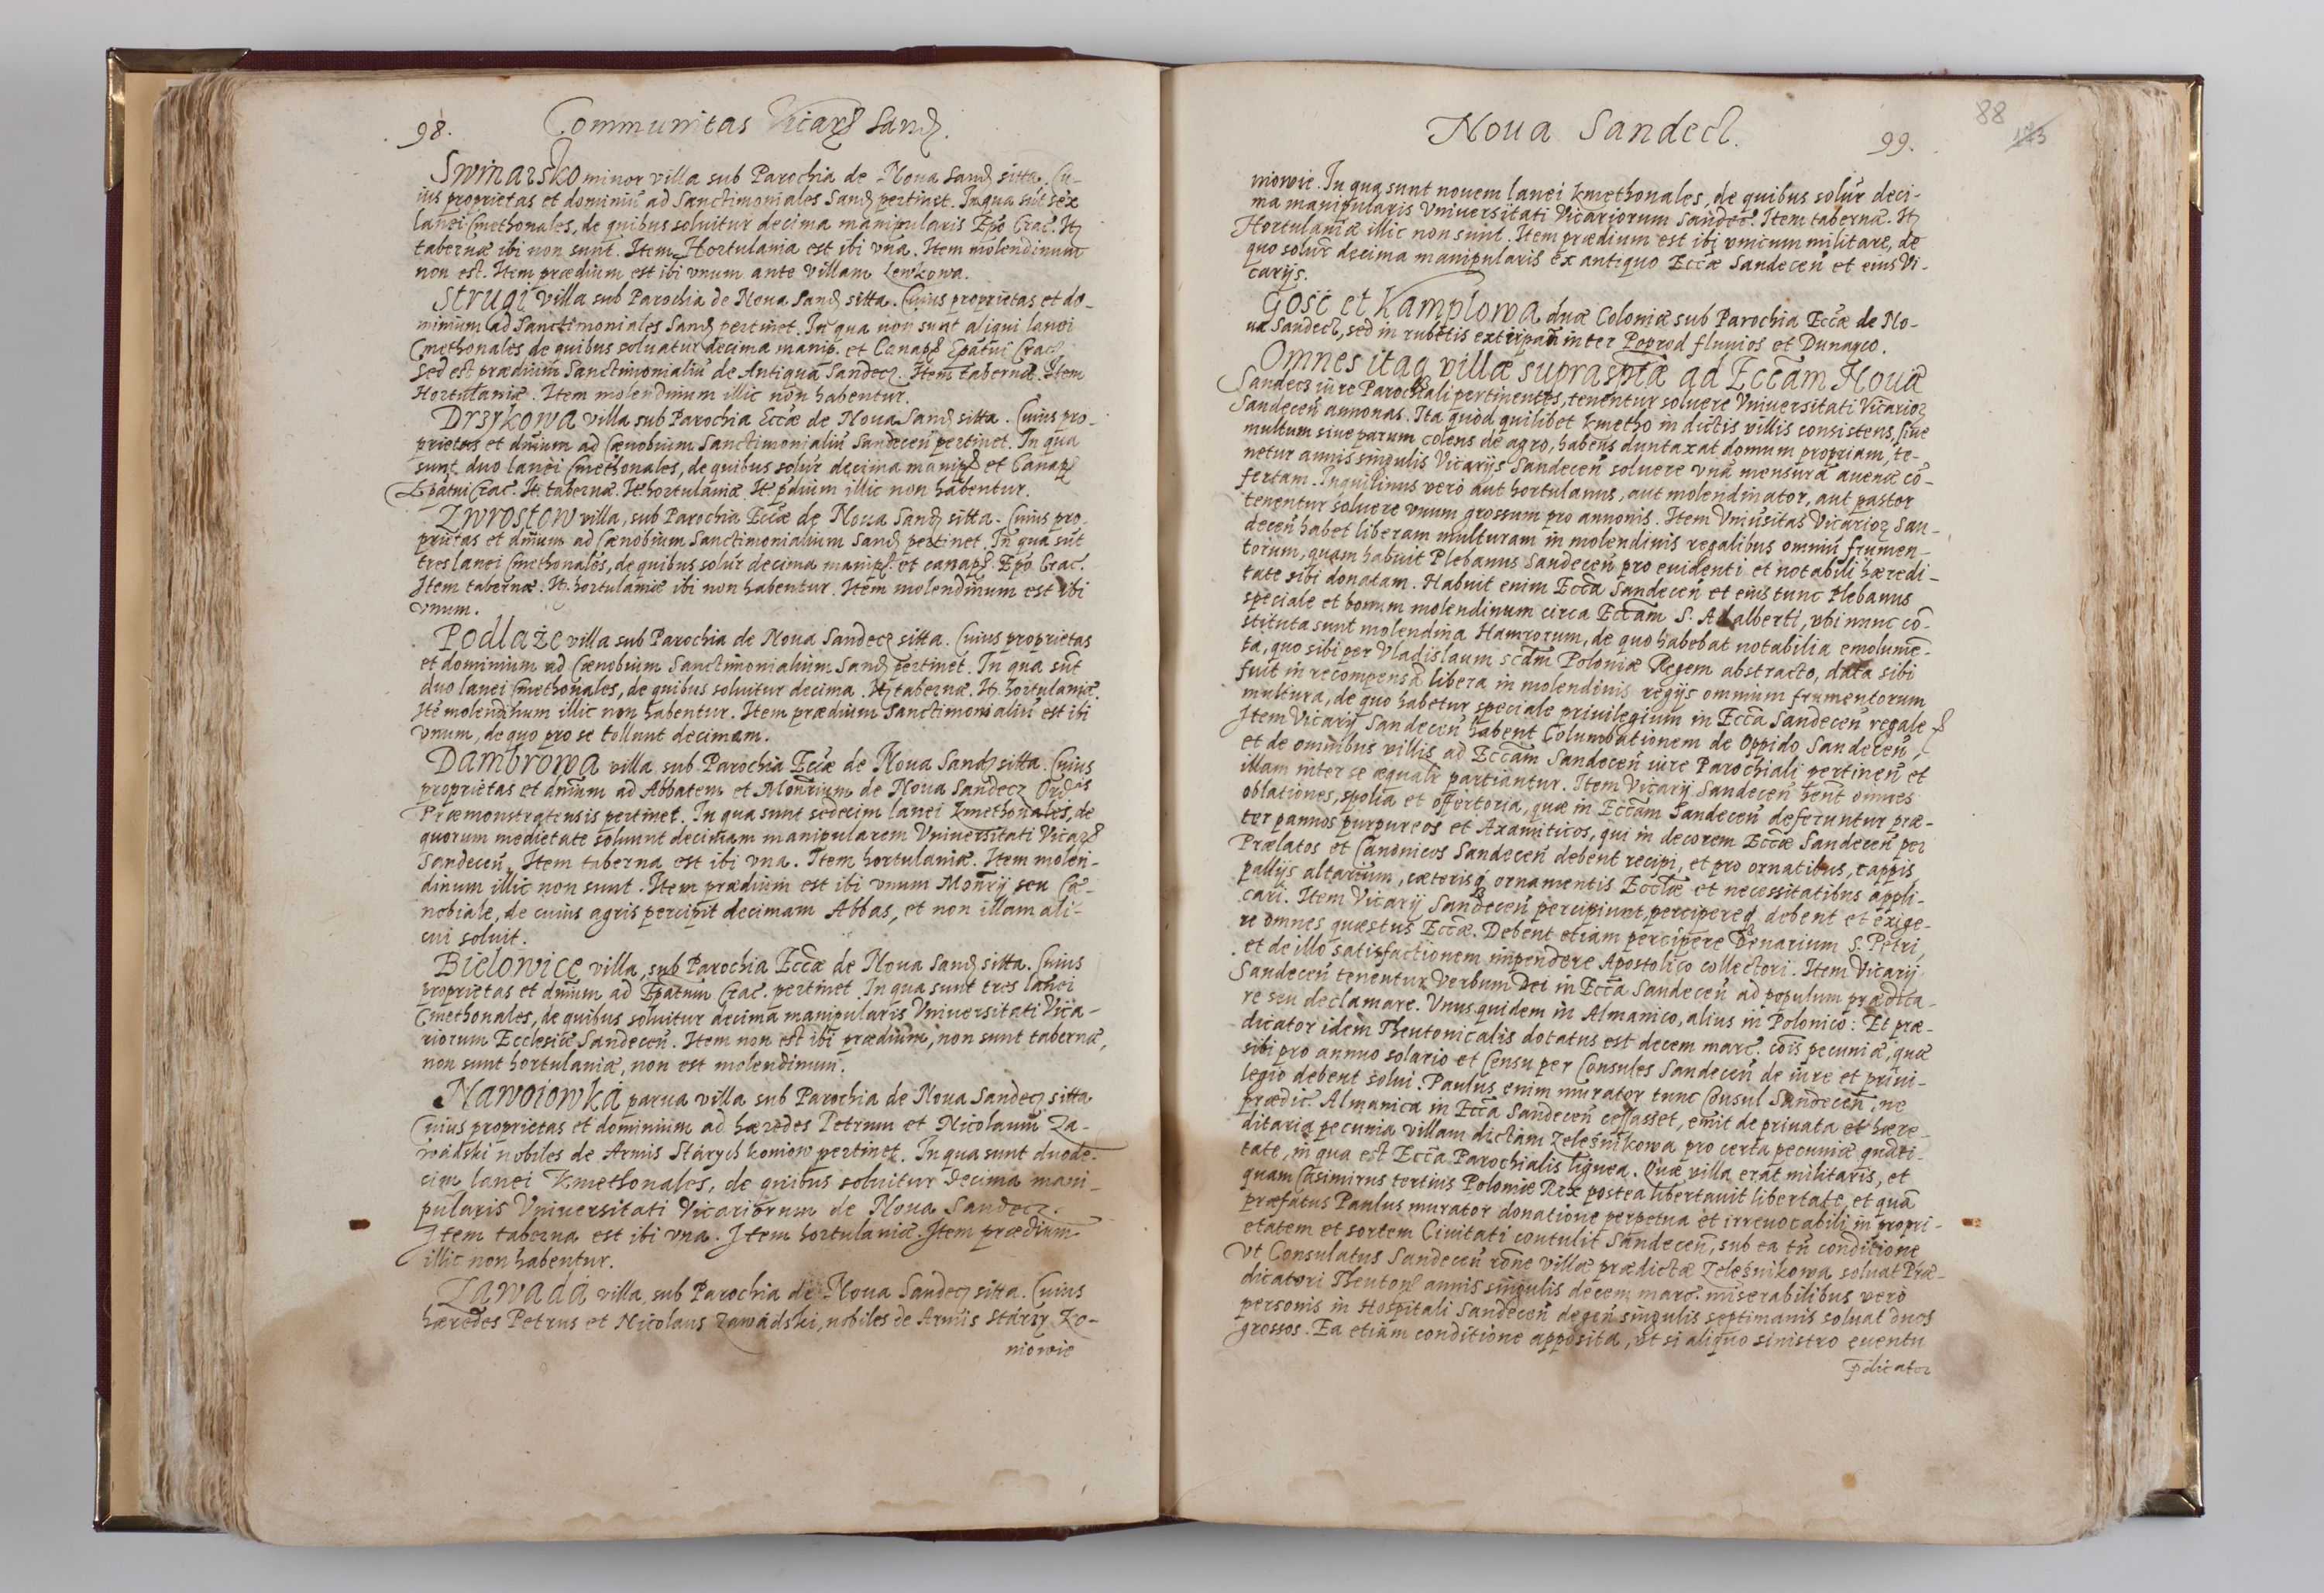 98.
Communitas Vicarꝝ Sandꝫ.
Swinarsko minor villa sub Parochia de Noua Sandꝫ sitta, Cu-
ius proprietas et dominiū ad Sanctimoniales Sandꝫ pertinet. In qua sūt sex
lanei Cmethonales, de quibus soluitur decima manipularis Ep̃o Crac̃. Itꝫ
tabernæ ibi non sunt. Item Hortulania est ibi vna. Item molendinum
non est. Item prædium est ibi vnum ante villam Lewkowa.
Strugi villa sub Parochia de Noua Sandꝫ sitta. Cuius proprietas et do-
minium ad Sanctimoniales Sandꝫ pertinet. In qua non sunt aliqui lanei
Cmethonales de quibus soluatur decima manip. et Canapꝫ Ep̃atui Cracꝫ
Sed est prædium Sanctimonialiū de Antiqua Sandecꝫ. Item tabernæ. Item
Hortulaniæ. Item molendinum illic non habentur.
Drzykowa villa sub Parochia Ecc̃æ de Noua Sandꝫ sitta. Cuius pro-
prietas et dñium ad Cænobium Sanctimonialiū Sandeceñ pertinet. In qua
sunt duo lanei Cmethonales, de quibus solũr decima manipꝫ et Canapꝫ
Ep̃atui Crac̃. Itꝫ tabernæ. Itꝫ hortulaniæ Itꝫ p̃dium illic non habentur.
Zwrostow villa, sub Parochia Ecc̃æ de Noua Sandꝫ sitta. Cuius pro-
prietas et dñium ad Cænobium Sanctimonialium Sandꝫ pertinet. In qua sūt
tres lanei Cmethonales, de quibus solũr decima manipꝫ. et canapꝫ. Ep̃o Crac̃.
Item tabernæ. Itꝫ. hortulaniæ ibi non habentur. Item molendinum est ibi
vnum.
Podlaże villa sub Parochia de Noua Sandecꝫ sitta. Cuius proprietas
et dominium ad Cænobium Sanctimonialium Sandꝫ pertinet. In qua sūt
duo lanei Cmethonales, de quibus soluitur decima. Itꝫ tabernæ. Itꝫ. hortulaniæ.
Itē molendinum illic non habentur. Item prædium Sanctimonialiū est ibi
vnum, de quo pro se tollunt decimam.
Dambrowa villa sub Parochia Ecc̃æ de Noua Sandꝫ sitta. Cuius
proprietas et dñium ad Abbatem et Mon̄rium de Noua Sandecꝫ Ord̃is
Præmonstratensis pertinet. In qua sunt sedecim lanei Kmethonales, de
quorum medietate soluunt decimam manipularem Vniuersitati Vicarꝝ
Sandeceñ. Item taberna est ibi vna. Item hortulaniæ. Item molen-
dinum illic non sunt. Item prædium est ibi vnum Moñrij seu Cæ-
nobiale, de cuius agris percipit decimam Abbas, et non illam ali-
cui soluit.
Bielowice villa, sub Parochia Ecc̃æ de Noua Sandꝫ sitta. Cuius
proprietas et dñium ad Ep̃atum Crac̃. pertinet. In qua sunt tres lanei
Cmethonales, de quibus soluitur decima manipularis Vniuersitati Vica-
riorum Ecclesiæ Sandeceñ. Item non est ibi prædium, non sunt tabernæ,
non sunt hortulaniæ, non est molendinum.
Nawoiowka parua villa sub Parochia de Noua Sandecꝫ sitta
Cuius proprietas et dominium ad hæredes Petrum et Nicolaum Za-
wádski nobiles de Armis Stárych koniow pertinet. In qua sunt duode-
cim lanei Kmethonales, de quibus soluitur decima mani-
pularis Vniuersitati Vicariorum de Noua Sandecꝫ.
Item taberna est ibi vna. Item hortulaniæ. Item prædium
illic non habentur.
Zawada villa sub Parochia de Noua Sandecꝫ sitta. Cuius
hæredes Petrus et Nicolaus Zawádski, nobiles de Armis Stárzy Ko-
niowie
Noua Sandecꝫ.
99.
88
niowie. In qua sunt nouem lanei kmethonales, de quibus solũr deci-
ma manipularis Vniuersitati Vicariorum Sandec̃. Item tabernæ. Itꝫ
Hortulaniæ illic non sunt. Item prædium est ibi vnicum militare, de
quo solũr decima manipularis ex antiquo Ecc̃æ Sandeceñ et eius Vi-
carijs.
Gość et Kamplowa duæ Coloniæ sub Parochia Ecc̃æ de No-
ua Sandecꝫ, sed in rubetis extirpatꝫ inter Poprod fluuios et Dunayco.
Omnes itaqꝫ villæ suprasp̃tæ ad Ecc̃am Nouā
Sandecꝫ iure Parochiali pertinentes, tenentur soluere Vniuersitati Vicarioꝝ
Sandeceñ annonas. Ita quòd quilibet kmetho in dictis villis consistens, siue
multum siue parum colens de agro, habens duntaxat domum propriam, te-
netur annis singulis Vicarijs Sandeceñ soluere vnā mensurā auenæ cō-
fertam. Inquilinus verò aut hortulanus, aut molendinator, aut pastor
tenentur soluere vnum grossum pro annonis. Item Vniũsitas Vicarioꝝ San-
deceñ habet liberam multuram in molendinis regalibus omniū frumen-
torum, quam habuit Plebanus Sandeceñ pro euidenti et notabili hæredi-
tate sibi donatam. Habuit enim Ecc̃a Sandeceñ et eius tunc Plebanus
speciale et bonum molendinum circa Ecc̃am S. Adalberti, vbi nunc cō-
stituta sunt molendina Hamrorum, de quo habebat notabilia emolumē-
ta, quo sibi per Vladislaum scd̃m Poloniæ Regem abstracto, data sibi
fuit in recompensā libera in molendinis regijs omnium frumentorum
multura, de quo habetur speciale priuilegium in Ecc̃a Sandeceñ regale
Item Vicarij Sandeceñ habent Columbationem de Oppido Sandeceñ,
et de omnibus villis ad Ecc̃am Sandeceñ iure Parochiali pertineñ et
illam inter se æqualr̃ partiantur. Item Vicarij Sandeceñ hēnt omnes
oblationes, spolia et offertoria, quæ in Ecc̃am Sandeceñ deferuntur præ-
ter pannos purpureos et Axamiticos, qui in decorem Ecc̃æ Sandeceñ per
Prælatos et Canonicos Sandeceñ debent recipi, et pro ornatibus, cappis,
pallijs altarium, cæterisqꝫ ornamentis Eccl̃æ et necessitatibus appli-
cari. Item Vicarij Sandeceñ percipiunt, percipereqꝫ debent et exige-
re omnes quæstus Ecc̃æ. Debent etiam percipere Denarium S. Petri,
et de illo satisfactionem impendere Apostolico collectori. Item Vicarij
Sandeceñ tenentur Verbum Dei in Ecc̃a Sandeceñ ad populum prædica-
re seu declamare. Vnus quidem in Almanico, alius in Polonico: Et præ-
dicator idem Theutonicalis dotatus est decem marc̃. cōis pecuniæ, quæ
sibi pro annuo solario et Censu per Consules Sandeceñ de iure et priui-
legio debent solui. Paulus enim murator tunc Consul Sandeceñ, ne
prædic̃. Almanica in Ecc̃a Sandeceñ cessasset, emit de priuata et hære-
ditaria pecunia villam dictam Zeleśnikowa pro certa pecuniæ quāti-
tate, in qua est Ecc̃a Parochialis lignea. Quæ villa erat militaris, et
quam Casimirus tertius Poloniæ Rex postea libertauit libertate, et quā
præfatus Paulus murator donatione perpetua et irreuocabili in propri-
etatem et sortem Ciuitati contulit Sandeceñ, sub ea tñ conditione
vt Consulatus Sandeceñ rōne villæ prædictæ Zeleśnikowa soluat Præ-
dicatori Theutonꝫ annis singulis decem marc̃. miserabilibus verò
personis in Hospitali Sandeceñ degeñ singulis septimanis soluat duos
grossos. Ea etiam conditione apposita, vt si aliquo sinistro euentu
p̃dicator